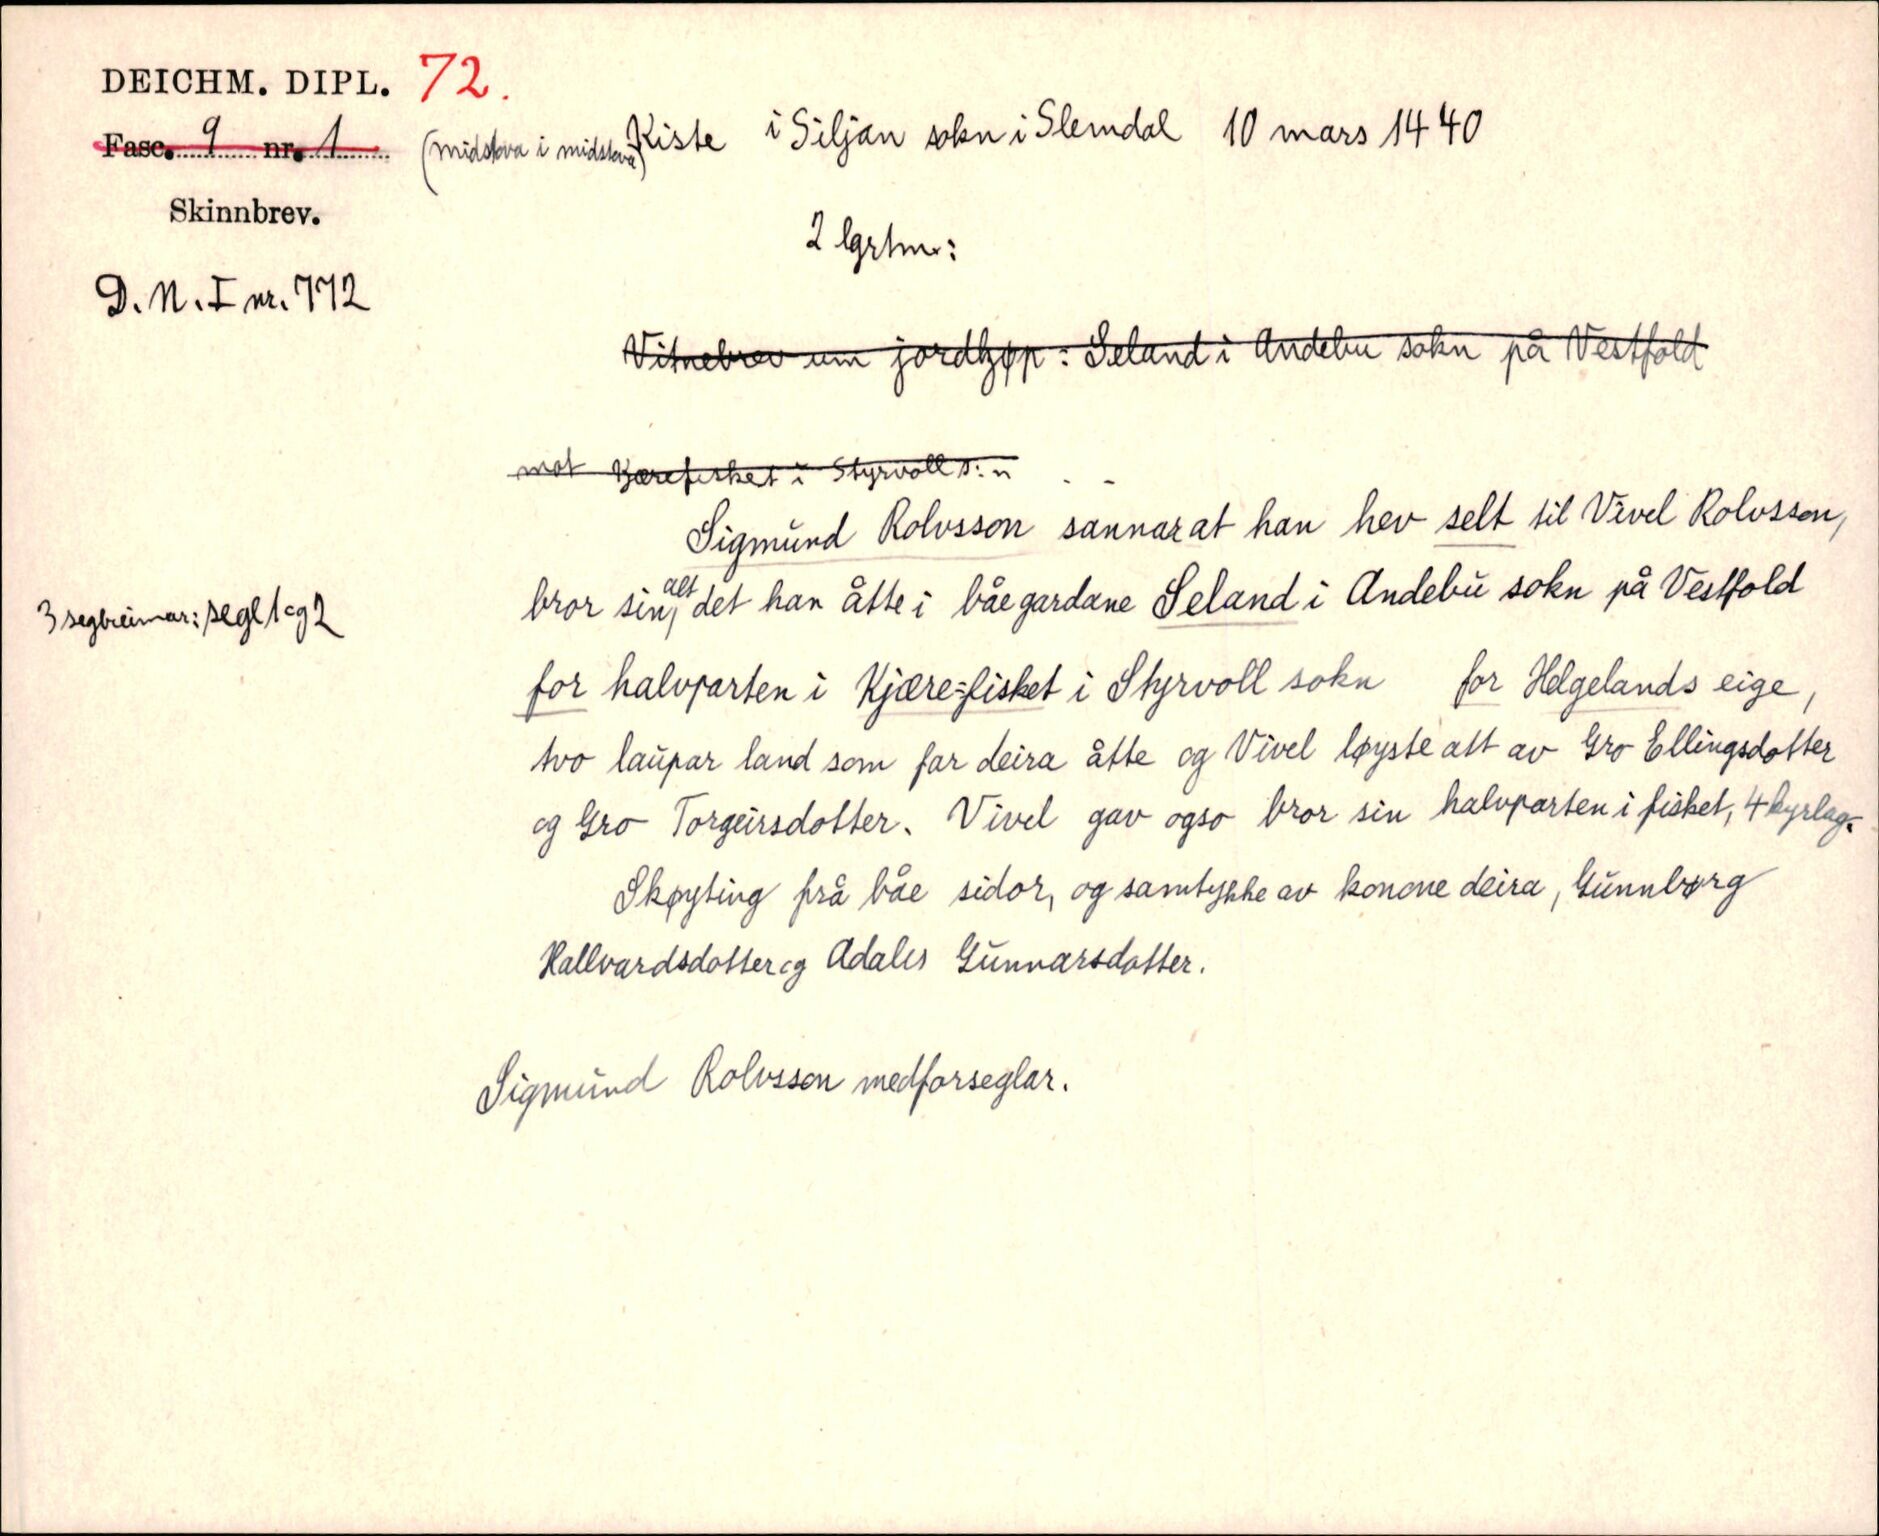 DEICHM. DIPL. 72.
Fasc. 9 nr. 1
(midstova i midstova) Kiste i Siljan sokn i Slemdal 10 mars 1440
Skinnbrev.
2 lgrtm.:
D. N. I nr. 772
Vitnebrev um jordkjøp: Seland i Andebu sokn på Vestfold
mot Kjærefisket i Styrvoll s:n
Sigmund Rolvsson sannar at han hev selt til Vivel Rolvsson,
bror sin, alt det han åtte i båe gardane Seland i Andebu sokn på Vestfold
3 seglreimar: segl 1 og 2
for halvparten i Kjære-fisket i Styrvoll sokn for Helgelands eige,
tvo laupar land som far deira åtte og Vivel løyste att av Gro Ellingsdotter
og Gro Torgeirsdotter. Vivel gav ogso bror sin halvparten i fisket, 4 kyrlag.
Skøyting frå båe sidor, og samtykke av konone deira, Gunnborg
Hallvardsdotter og Adalis Gunnarsdotter.
Sigmund Rolvsson medforseglar.